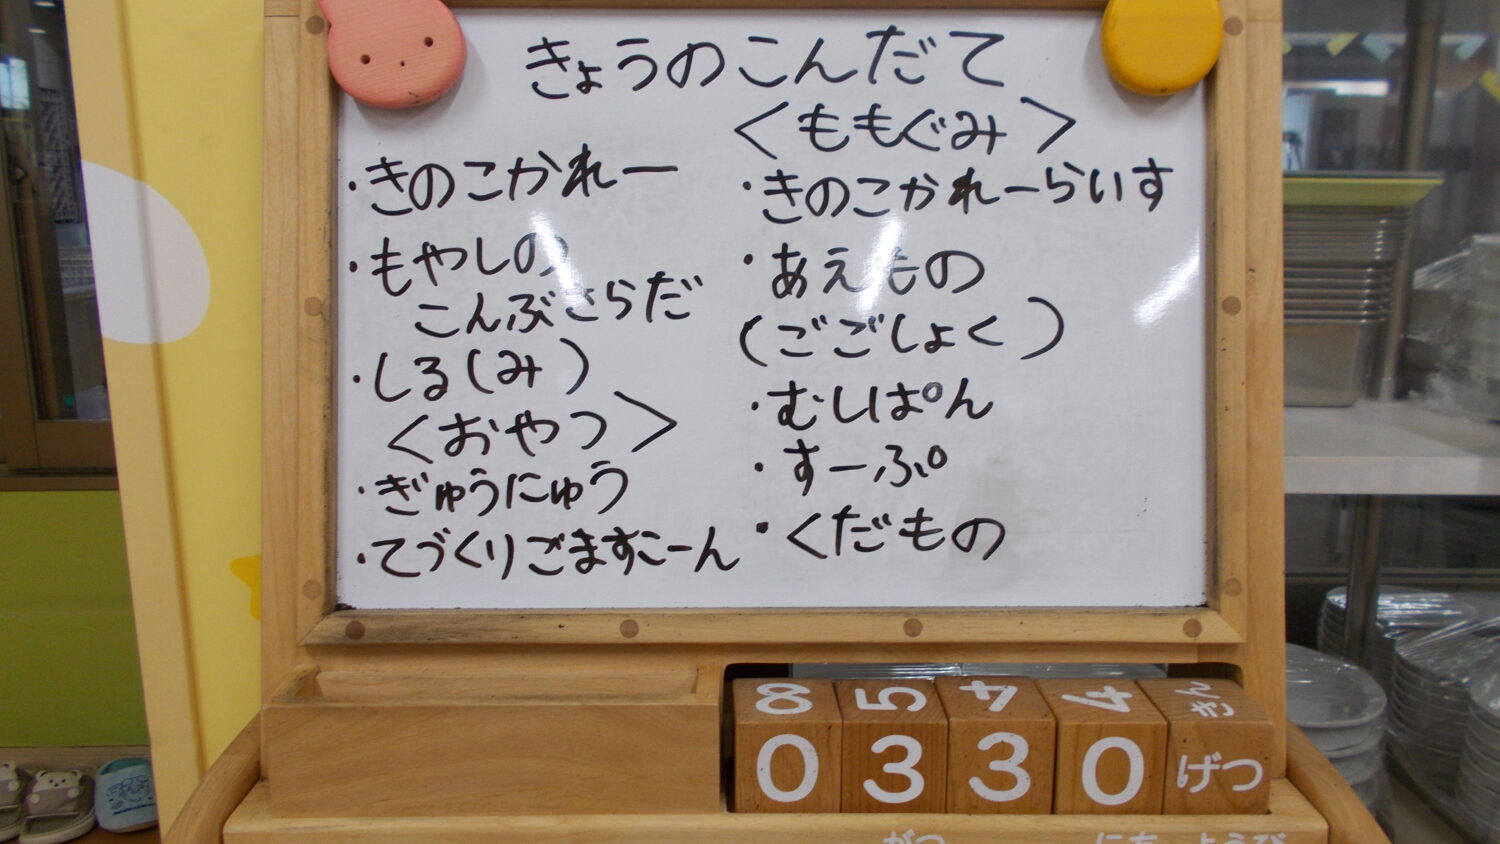 きょうのこんだて
・きのこかれー
・もやしの
こんぶさらだ
・しる(み)
<おやつ>
・ぎゅうにゅう
・てづくりごますこーん
<ももぐみ>
・きのこかれーらいす
・あえもの
(ごごしょく)
・むしぱん
・すーぷ
・くだもの
8 5 4 4 きん
0 3 3 0 げつ
がつ にち ようび